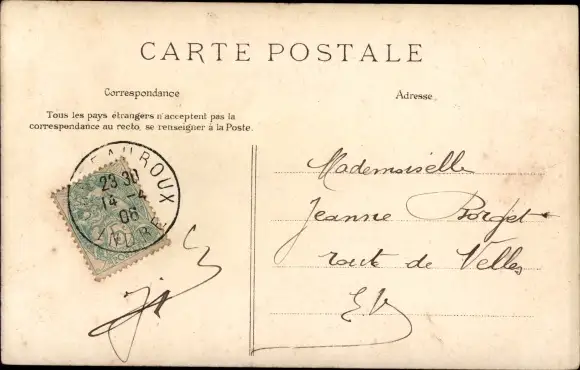 CARTE POSTALE
Correspondance
Adresse.
Tous les pays étrangers n'acceptent pas la
correspondance au recto, se renseigner à la Poste.
EAUROUX
23 30
14 - 4
06
INDRE
Mademoiselle
Jeanne Borget
route de Velles
E.V.